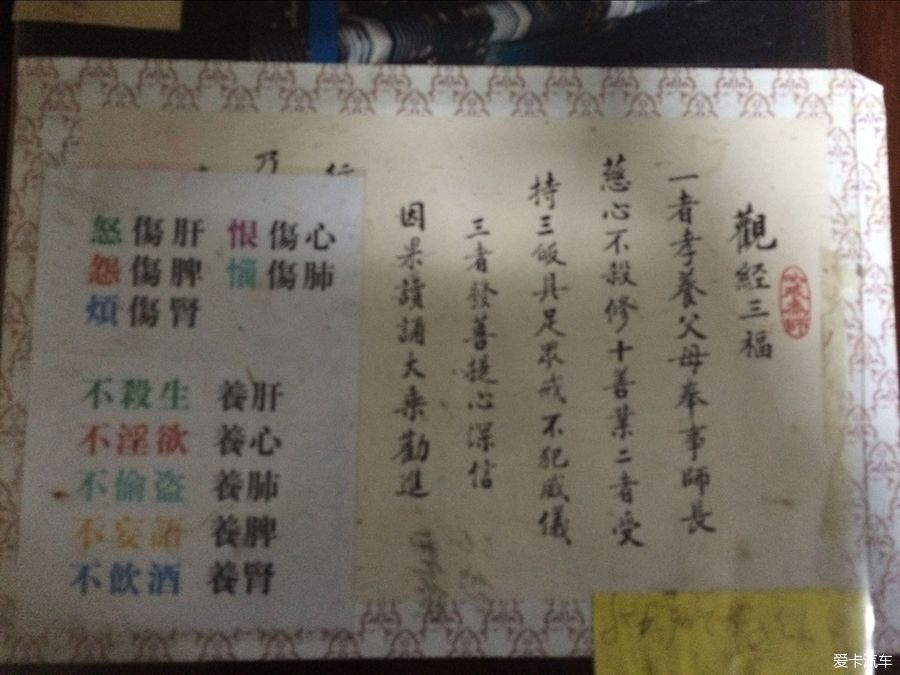 觀經三福
一者孝養父母奉事師長
慈心不殺修十善業二者受
持三皈具足眾戒不犯威儀
三者發菩提心深信
因果讀誦大乘勸進
行
乃
怒傷肝 恨傷心
怨傷脾 惱傷肺
煩傷腎
不殺生 養肝
不淫欲 養心
不偷盜 養肺
不妄語 養脾
不飲酒 養腎
爱卡汽车